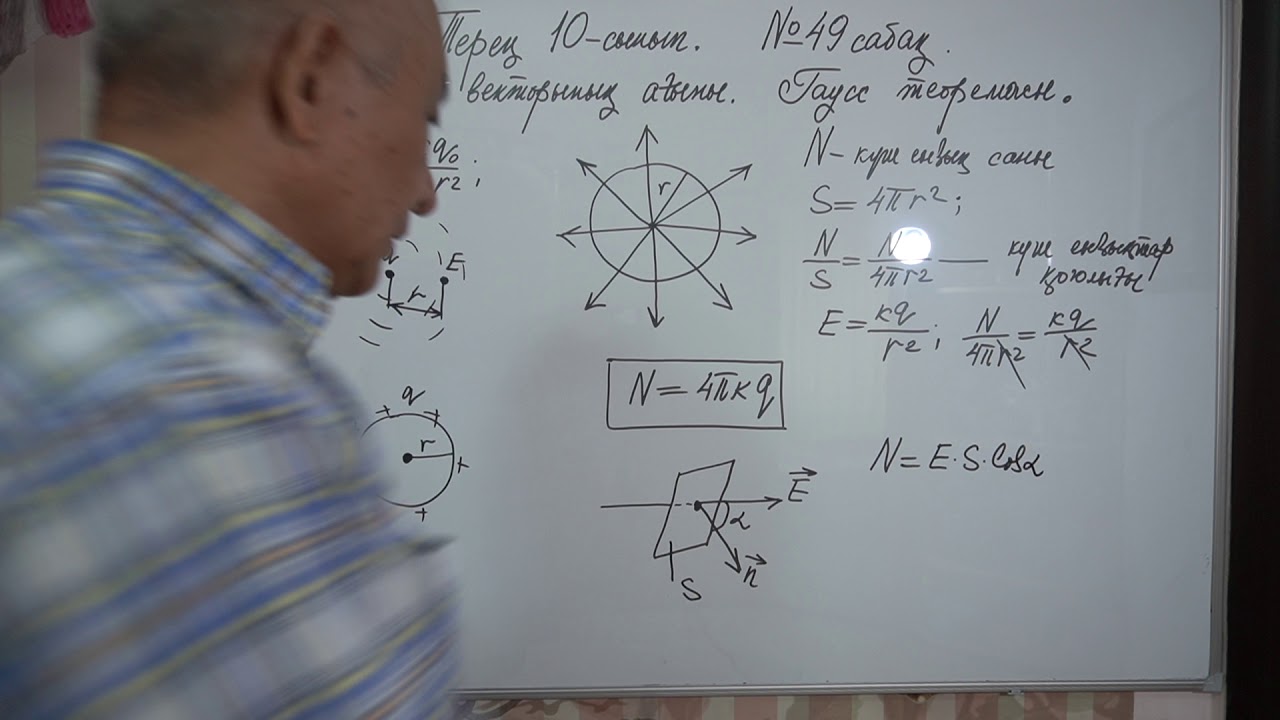 Терең 10-сынып. №49 сабақ.
векторының ағыны. Гаусс теоремасы.
q₀
r² ;
E₁
r
q
r
r
N = 4πkq
E
α
n
S
N - күш сызық саны
S = 4πr² ;
N/S = N/4πr² — күш сызықтар
қоюлығы
E = kq/r² ; N/4πr² = kq/r²
N = E·S·Cosα